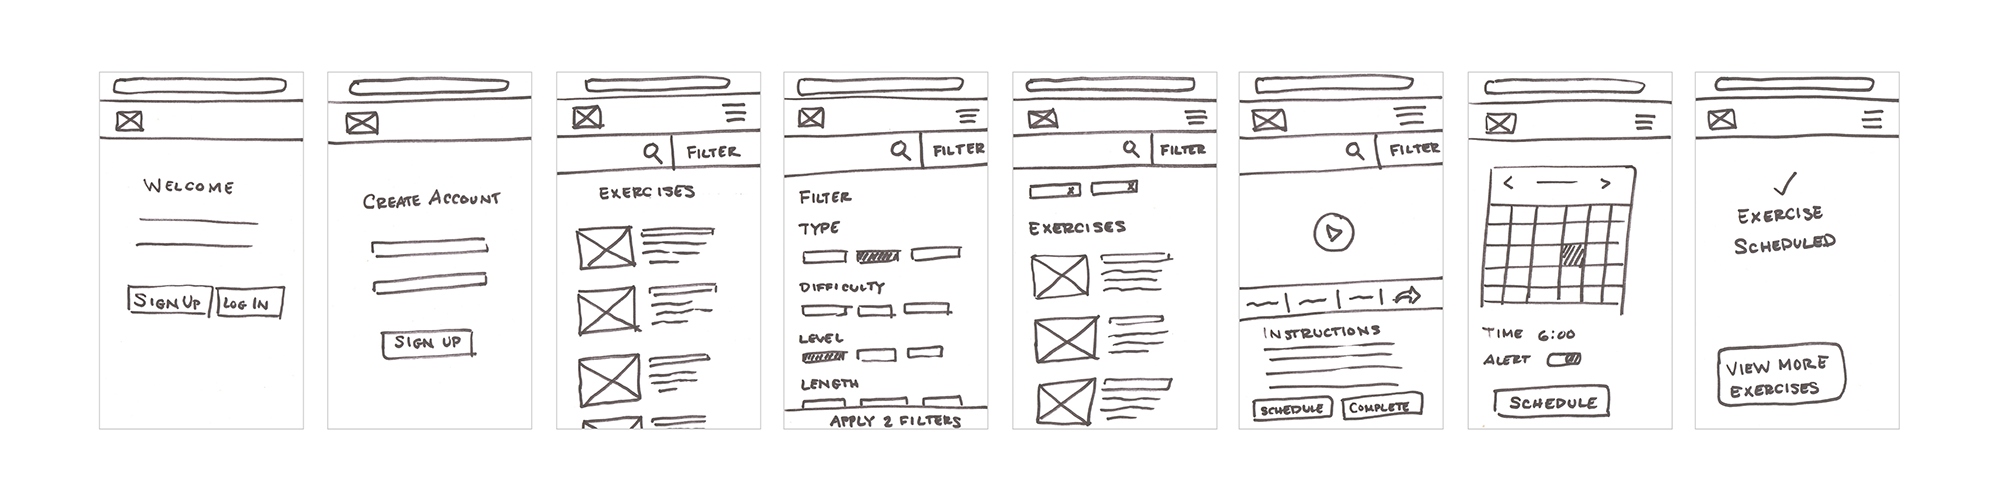 WELCOME
SIGN UP
LOG IN
CREATE ACCOUNT
SIGN UP
FILTER
EXERCISES
FILTER
FILTER
TYPE
DIFFICULTY
LEVEL
LENGTH
APPLY 2 FILTERS
FILTER
EXERCISES
FILTER
INSTRUCTIONS
SCHEDULE
COMPLETE
TIME 6:00
ALERT
SCHEDULE
EXERCISE
SCHEDULED
VIEW MORE
EXERCISES